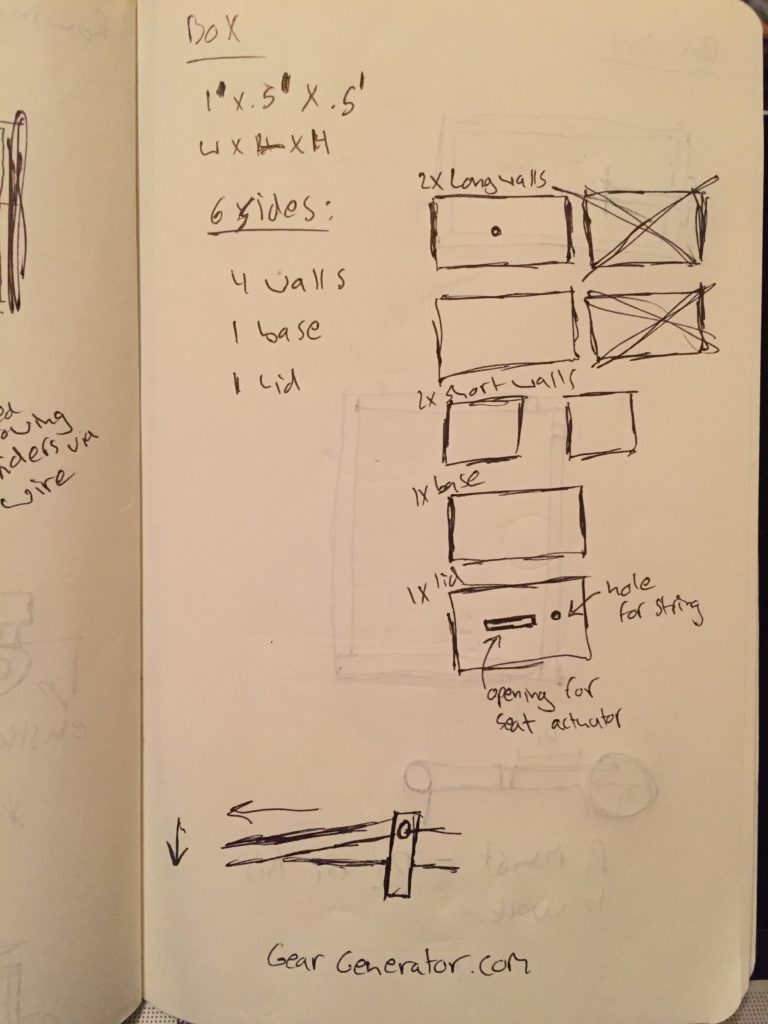 Box
1' x .5' x .5'
W x L x H
6 sides:
4 walls
1 base
1 lid
2x Long walls
2x short walls
1x base
1x lid
hole
for string
opening for
seat actuator
Gear Generator.com
wire